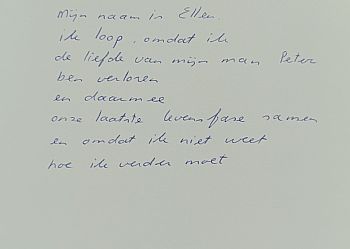 Mijn naam is Ellen.
ik loop, omdat ik
de liefde van mijn man Peter
ben verloren
en daarmee
onze laatste levensfase samen
en omdat ik niet weet
hoe ik verder moet